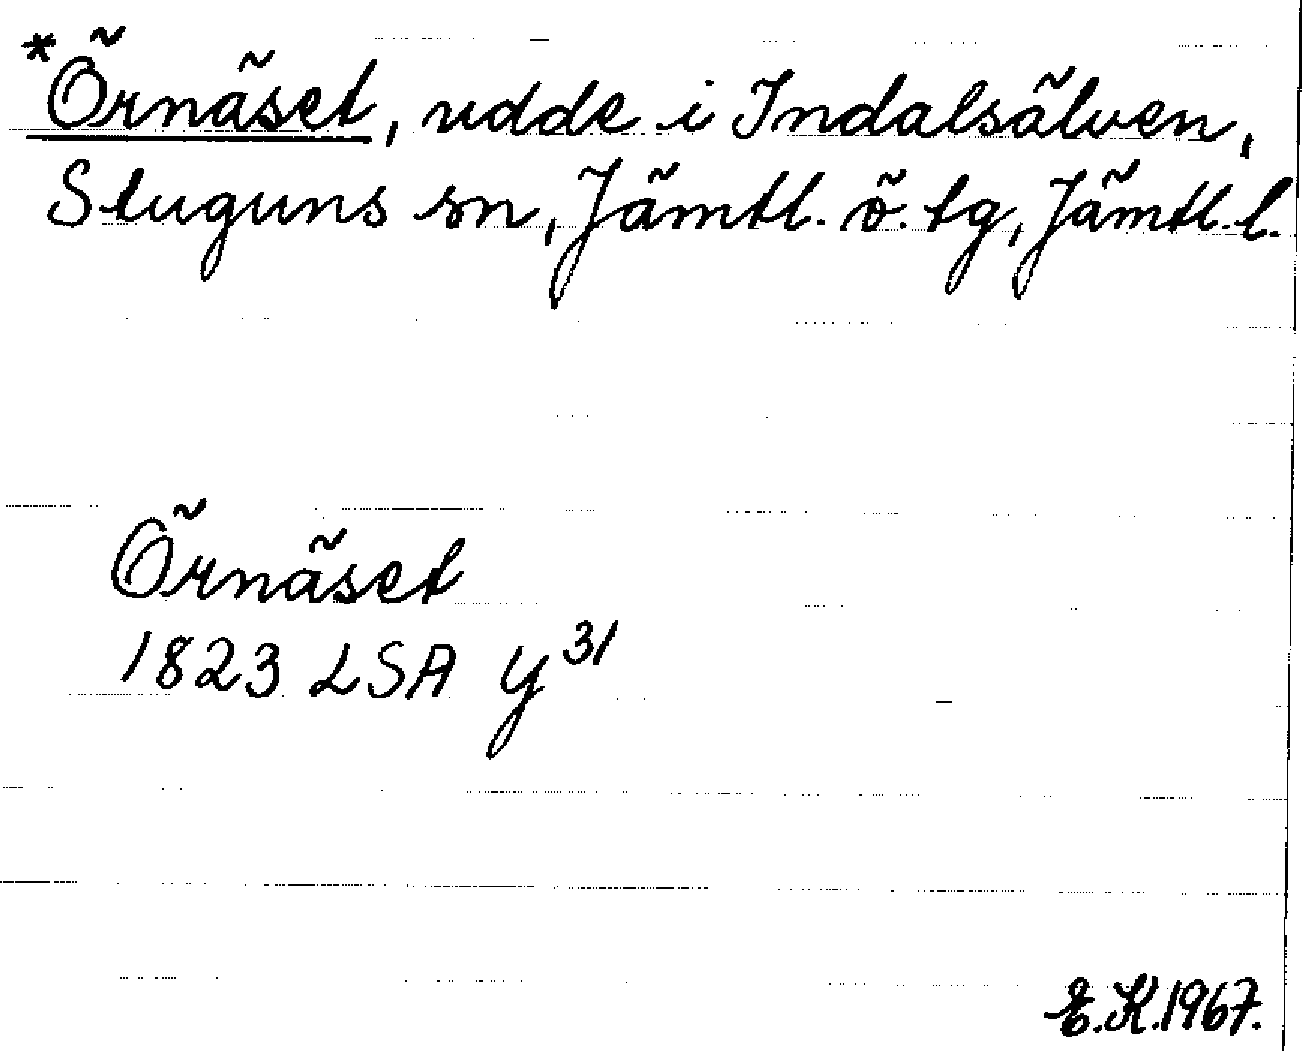 *Örnäset, udde i Indalsälven,
Stuguns sn, Jämtl. ö. tg, Jämtl. l.
Örnäset
1823 LSA Y³¹
E.K. 1967.